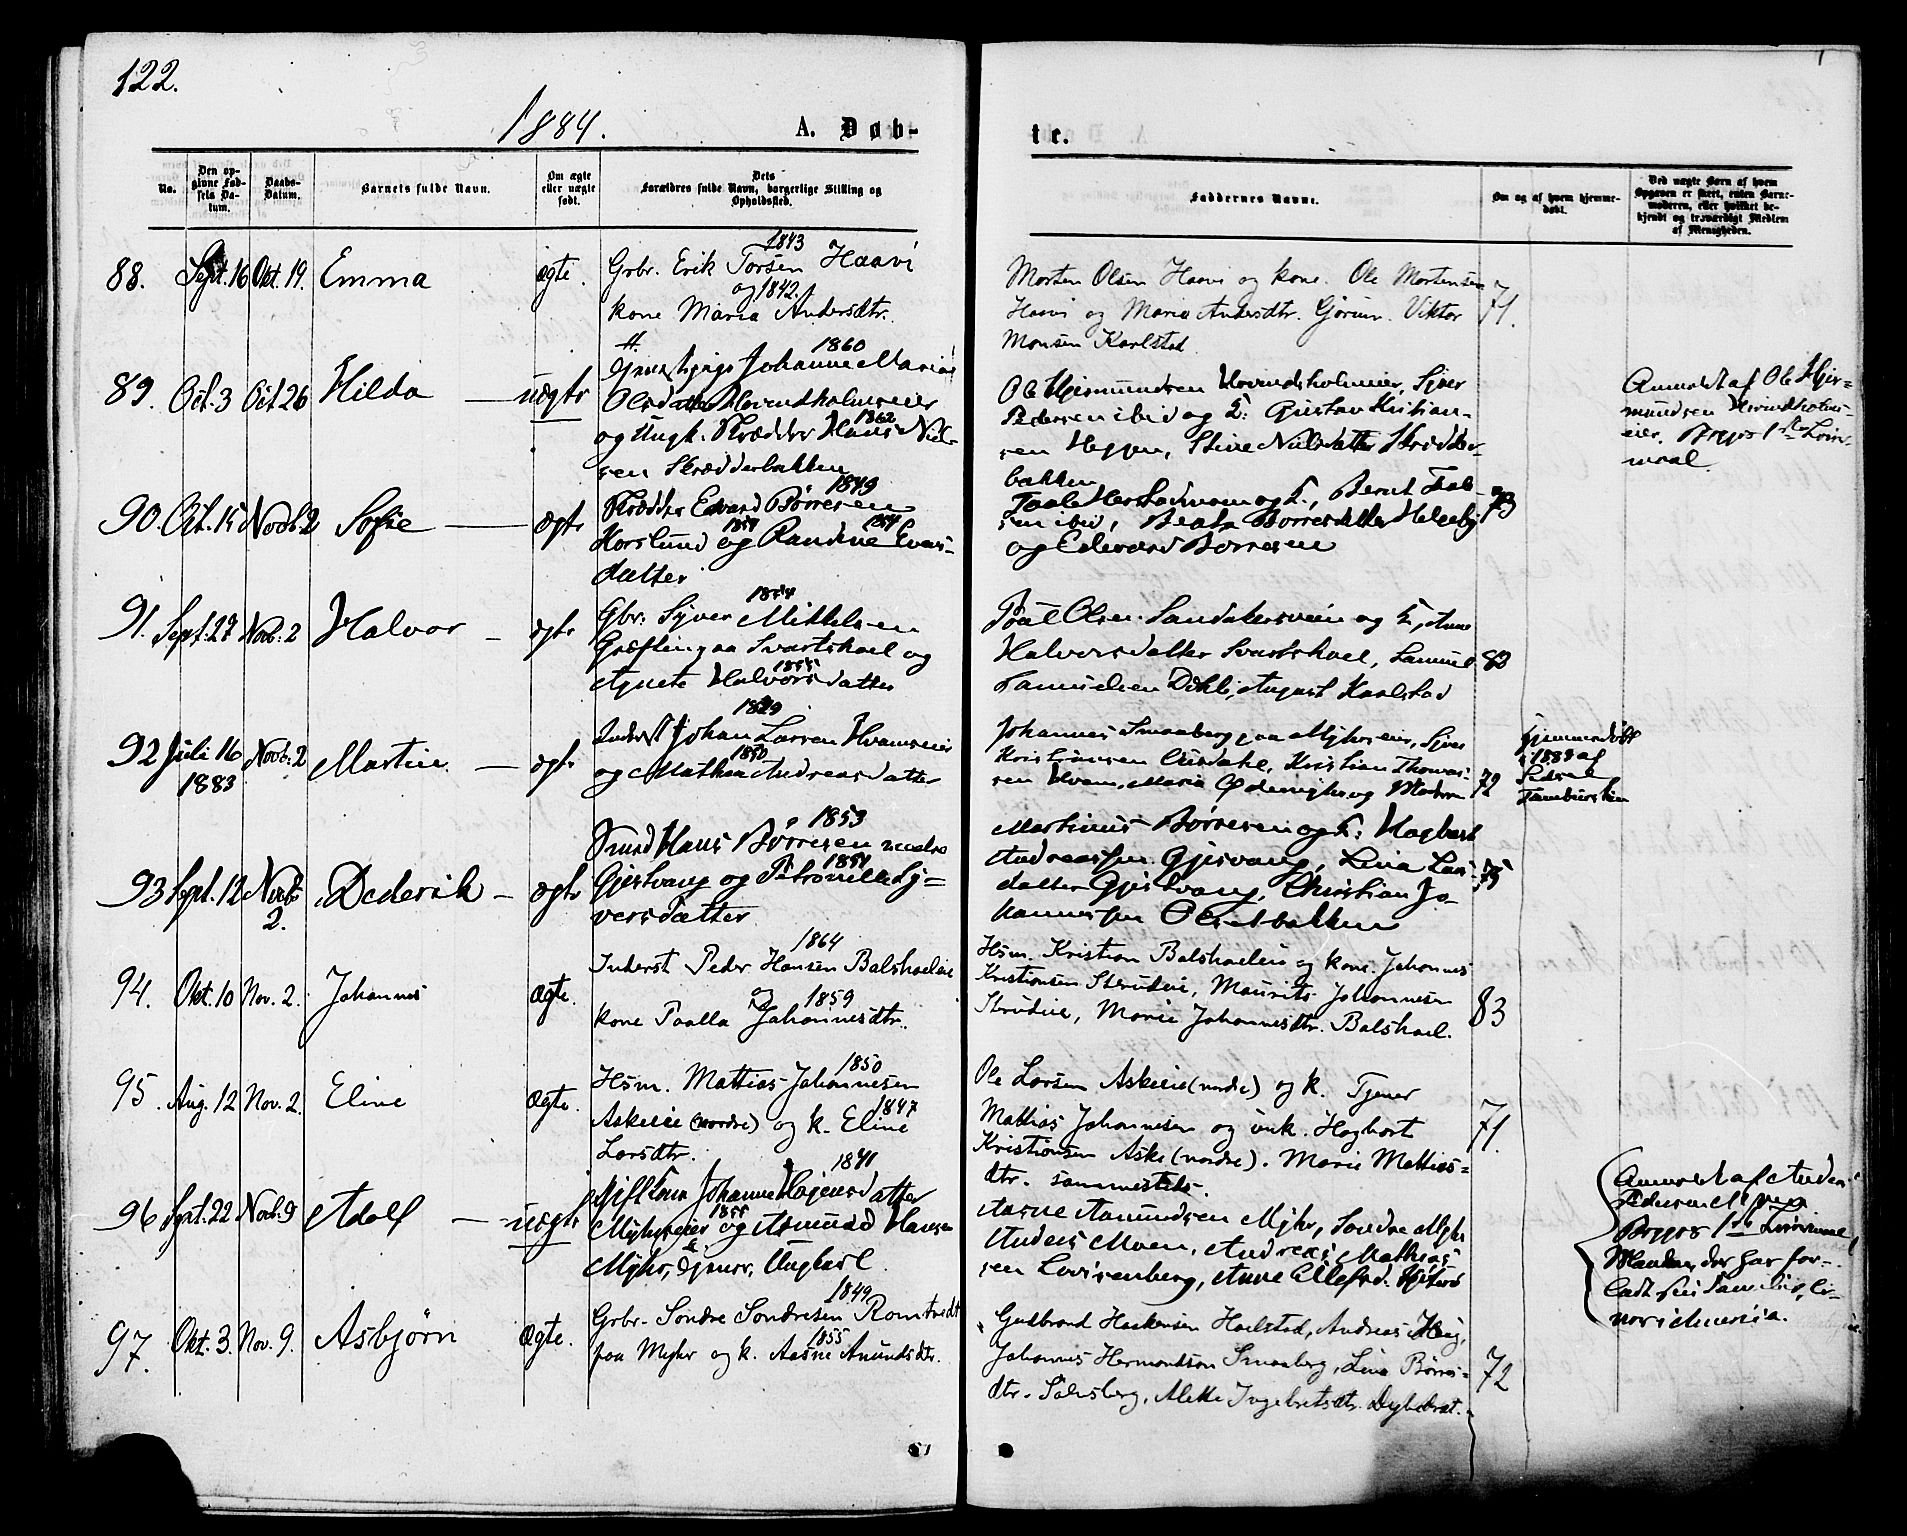 122.
1884.
A. Døb-
te.
No.
Den op-
givne Fød-
sels Da-
tum.
Daabs-
Datum.
Barnets fulde Navn.
Om ægte
eller uægte
født.
Dets
Forældres fulde Navn, borgerlige Stilling og
Opholdssted.
Faddernes Navne.
Om og af hvem hjemme-
døbt.
Ved uægte Børn af hvem
Opgaven er skeet, enten Barne-
moderen, eller hvilket be-
kjendt og troværdigt Medlem
af Menigheden.
88. Sept. 16 Okt. 19. Emma ægte.
1843
Grbr. Erik Torsen Haavi
og 1842.
kone Maria Andersdtr.
Morten Olsen Haavi og kone. Ole Mortensen
Haavi og Maria Andersdtr. Gjørum. Viktor
Monsen Karlstad
71.
89. Oct. 3 Oct 26 Hilda uægte
1860
Johanne Maria
Olsdatter Hovindholmseier
1862
og Ungk. Skrædder Hans Niel-
sen Skrædderbakken
Ole Hjermundsen Hovindsholmeier, Syver
Pedersen ibid og K. Gustav Kristian-
sen Heppen, Stine Nielsdatter Skrædder-
bakken
Anmeldt af Ole Hjer-
mundsen Hovindholms-
eier. Begges 1ste Leier-
maal.
90. Oct. 15 Novb. 2 Sofie ægte
1849
Skrædder Edvard Børresen
Korslund og Randine Evens-
datter
Berut
ibid, Beate Børresdatter Helseby
og Edvard Børresen
73
91. Sept. 27 Nvb. 2 Halvor ægte
1854
Gbr. Syver Mikkelsen
Græsting paa Svartshoel og
1855
Agnete Halvorsdatter
Poul Olsen Sandakersveien og K, Anne
Halvorsdatter Svartshoel, Samuel
Samuelsen Dehli, August Kaalstad
82
92 Juli 16 Novb. 2 Martin. ægte
1883
1829
Inderst Johan Larsen Hvamseier
1850
og Mathea Andreasdatter
Johannes Smaaberg paa Myhrseier, Syver
Kristiansen Aasdahl, Kristian Thomas-
sen Hvam, Maria Ødemyhr og Moderen
72
Hjemmedøbt
1883 af
Pedersen
93 Sept. 12 Novb. Dederik ægte
2.
1853
Smed Hans Børresen nedre
1851
Gjestvang og Petronille Sy-
versdatter
Martinus Børresen og K. Hagbart
Andreassen Gjesvang, Lina Lars-
datter Gjestvang, Christian Jo-
hannessen Olsetbakken
75
94. Okt. 10 Nov. 2. Johannes Ægte.
1864
Inderst Peder Hansen Balshoeleie
og 1859
kone Paalla Johannesdtr.
Hsm. Kristian Balshoeleie og kone. Johannes
Kristiansen Sterudeie, Maurits Johannesen
Sterudeie, Marie Johannesdtr. Balshoel.
83
95. Aug. 12 Nov. 2. Eline Ægte.
1850
Hsm. Mattias Johannesen
1847
Askeeie (nordre) og k. Eline
Larsdtr.
Ole Larsen Askeeie (nordre) og k. Tjener
Mattias Johannesen og unk. Hagbart
Kristiansen Aske (nordre). Marie Mattias-
dtr. sammesteds.
71.
96 Spt. 22 Novb. 9 Adolf uægte
1841
Gift Kone Johanne Hagensdatter
1855
Myhrseier og Amund Hansen
Myhr, Tjener, Ungkarl.
Aasne Aamundsen Myhr, Sondre Myhr
Anders Moen, Andreas Mathias-
sen Lovisenberg, Anne
Anmeldt af Anders
Pedersen Moen
Begges 1ste Leiermaal
Manden der har for-
ladt sin Familie, er
nori Amerika.
97. Okt. 3. Nov. 9. Asbjørn Ægte.
1849
Grbr. Sondre Sondresen Romtvedt
1855
paa Myhr og k. Aasne Amundsdtr.
Gudbrand Haakensen Hoelstad, Andreas Haug,
Johannes Hermandson Smaaberg, Lina Børres-
dtr. Solusberg, Alette Ingebretsdtr. Dybdrat.
72